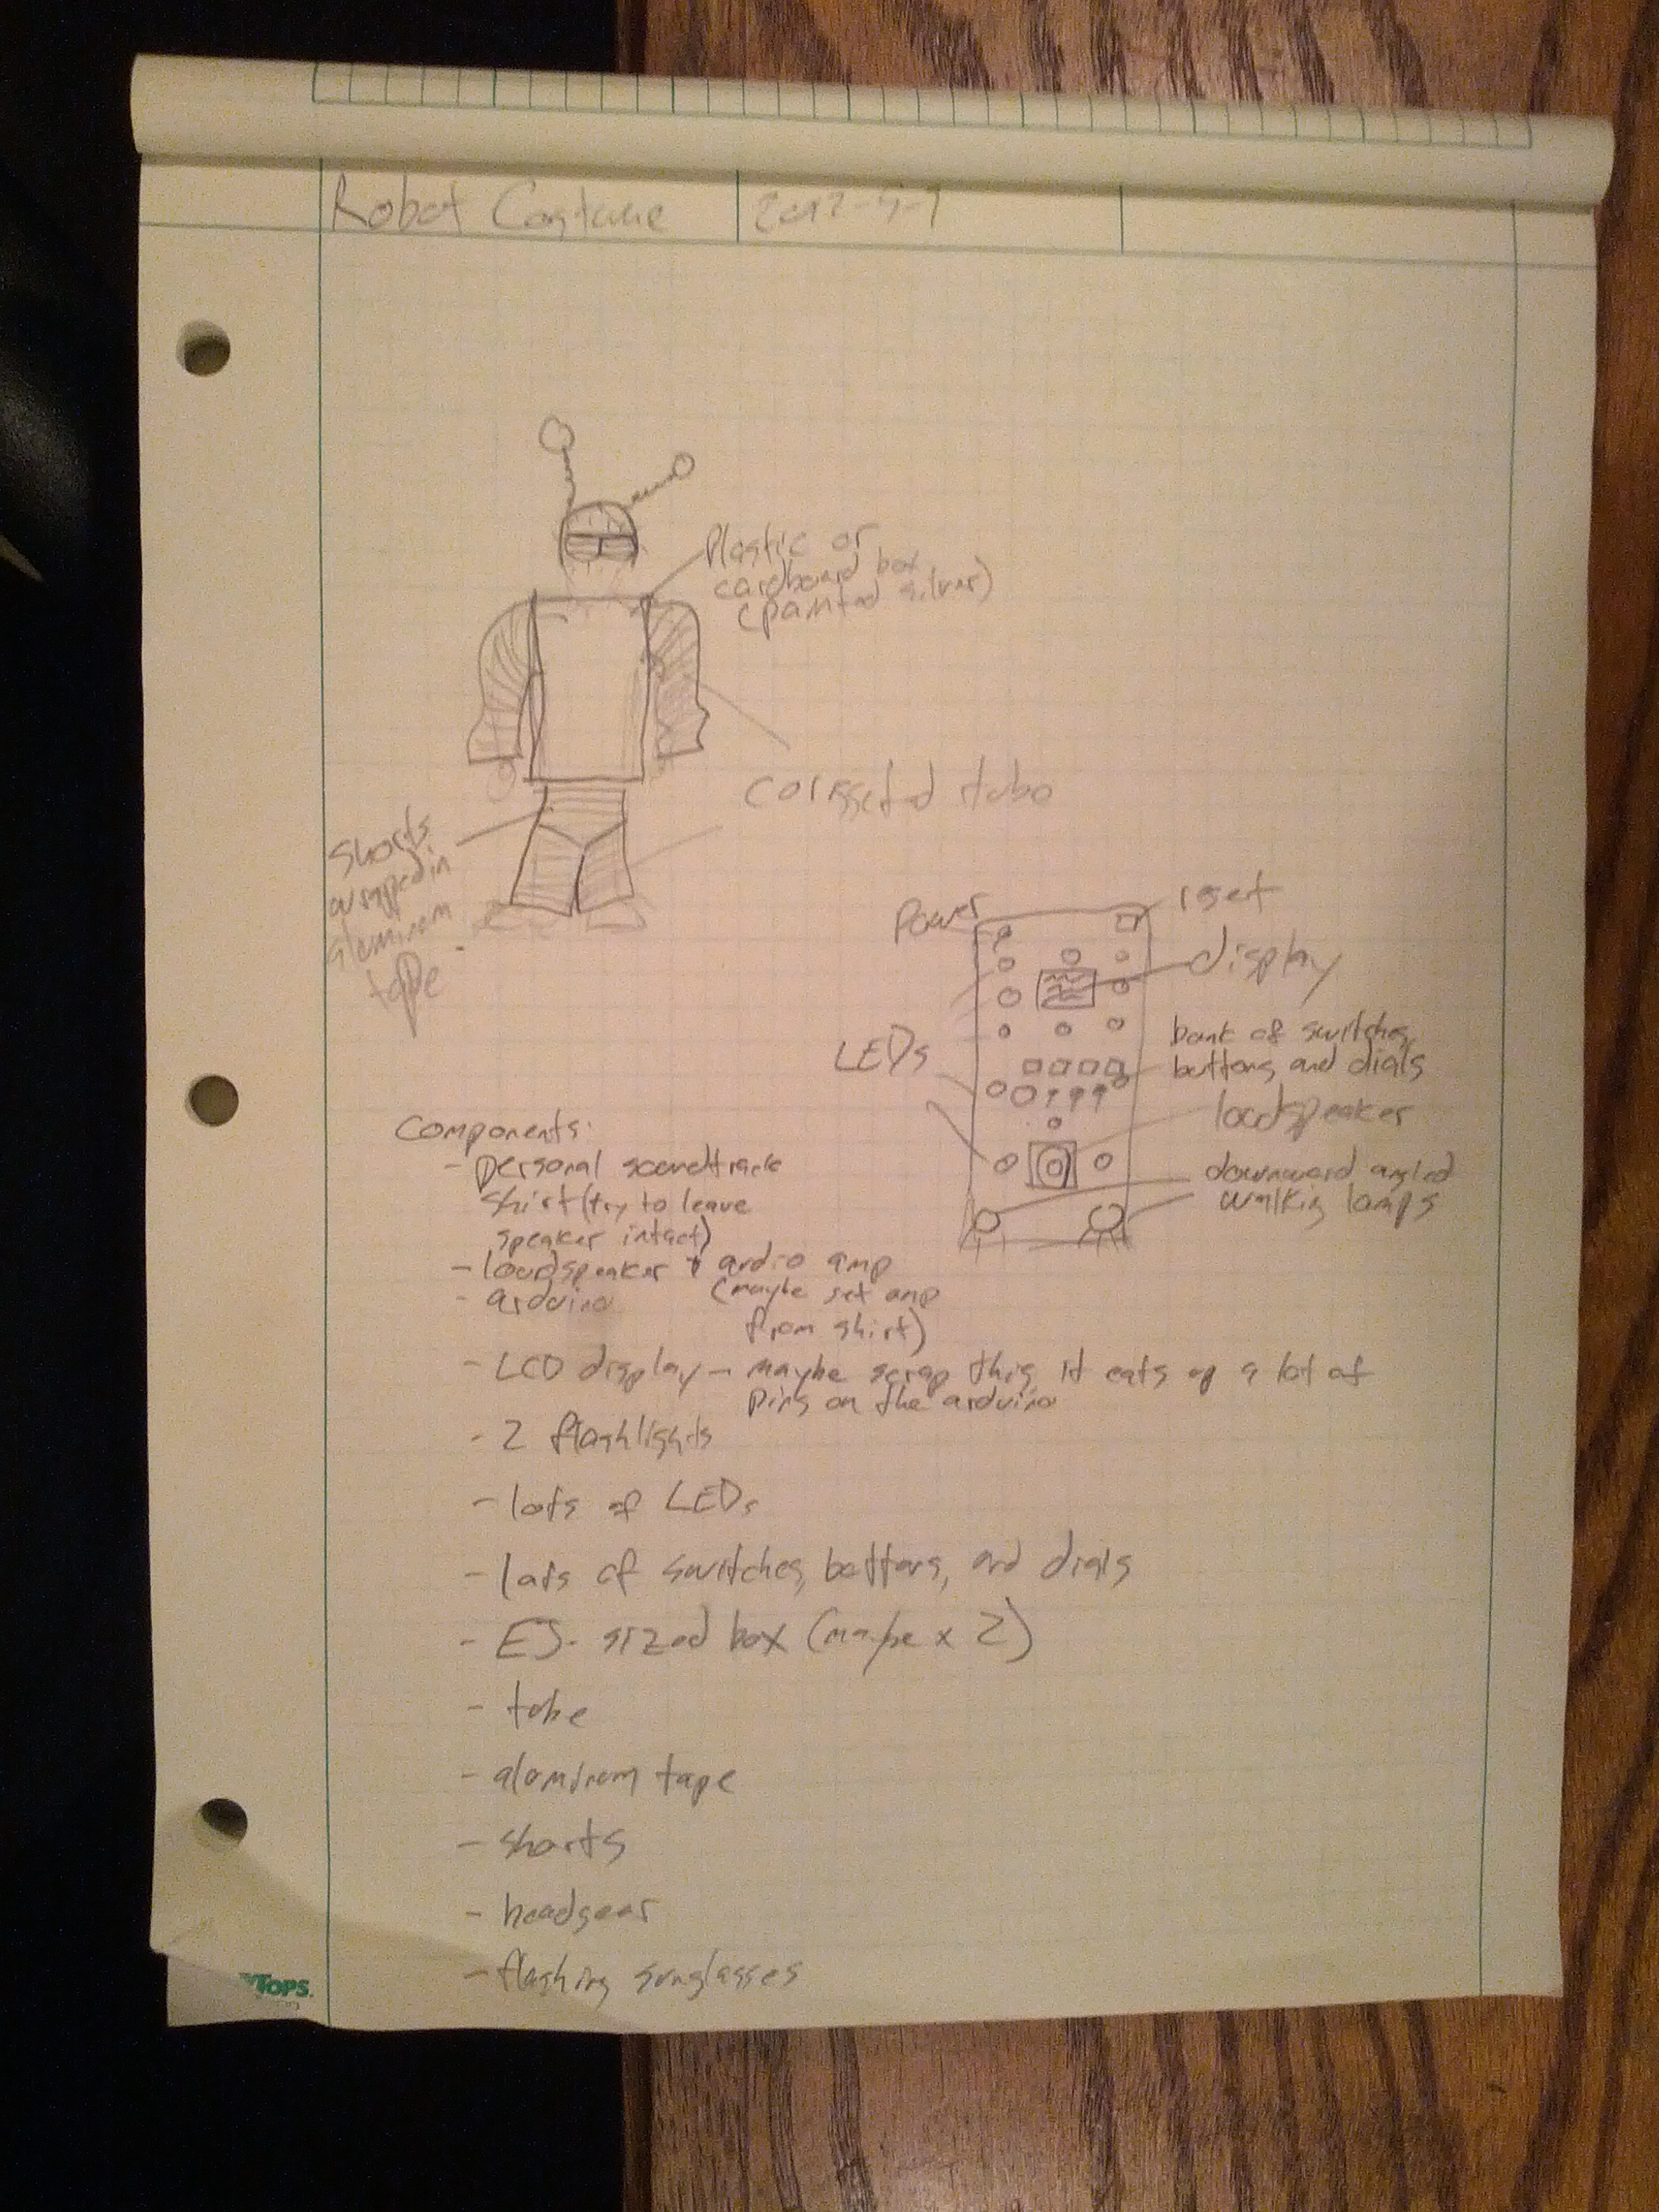 Robot Costume
2012-9-9
Plastic or
cardboard box
(painted silver)
tube
Shorts
wrapped in
aluminum
tape
Power
reset
display
LEDs
bank of switches,
buttons, and dials
loudspeaker
downward angled
walking lamps
Components:
- personal soundtrack
shirt (try to leave
speaker intact)
- loudspeaker + audio amp
(maybe set amp
from shirt)
- arduino
- LCD display - maybe scrap this, it eats up a lot of
pins on the arduino
- 2 flashlights
- lots of LEDs
- lots of switches, buttons, and dials
- EJ-sized box (maybe x 2)
- tube
- aluminum tape
- shorts
- headgear
- flashing sunglasses
TOPS.